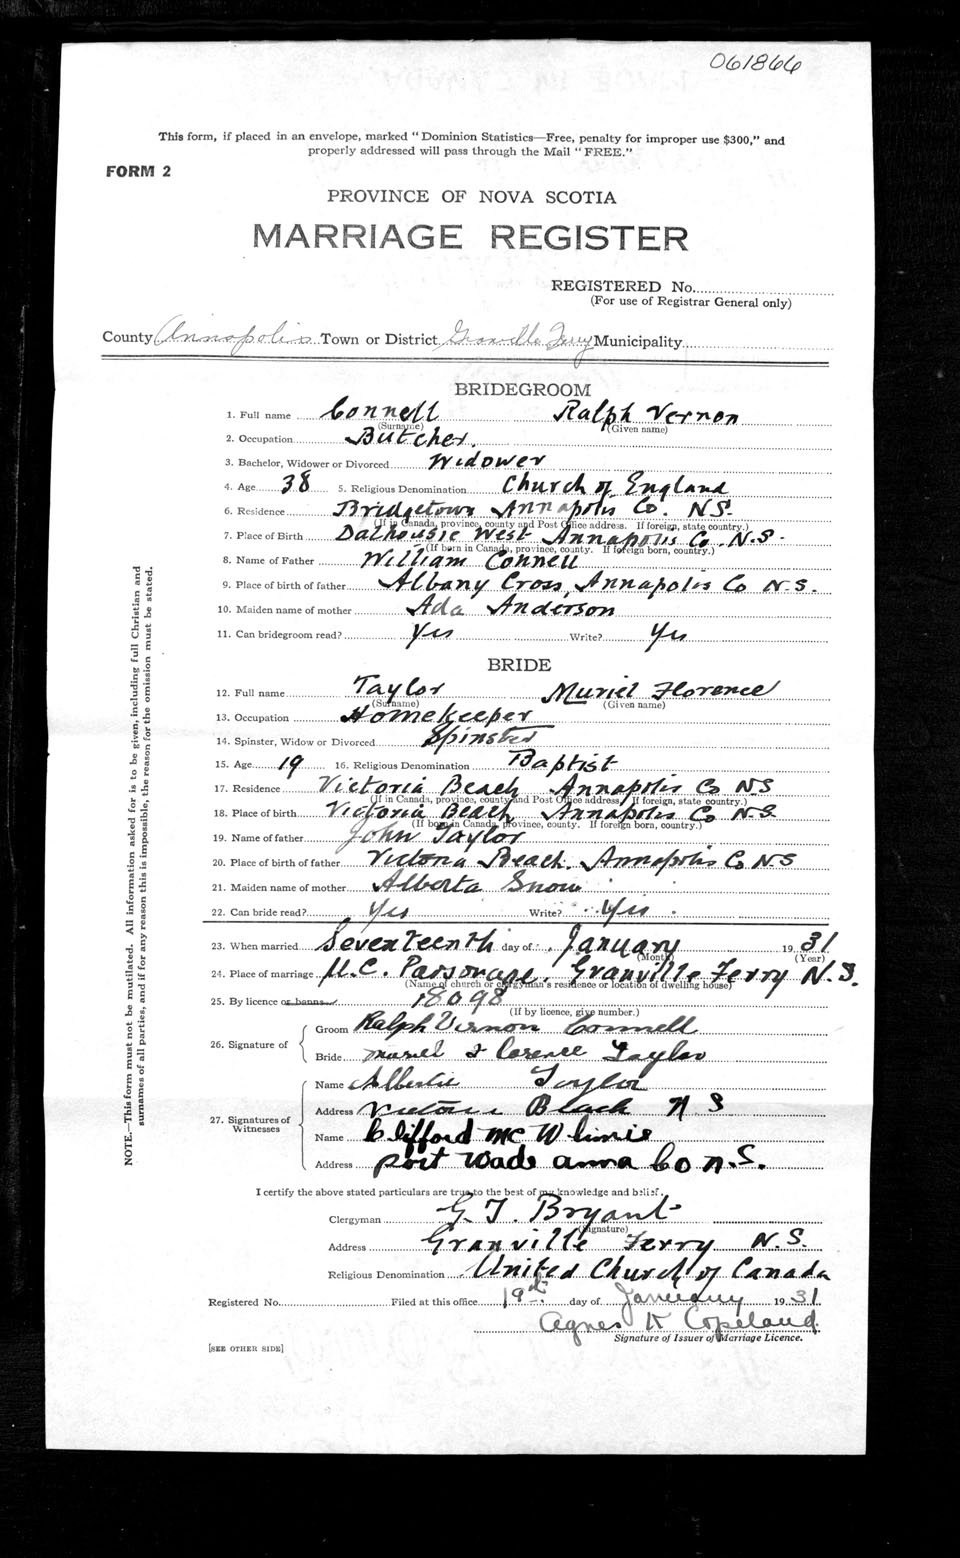 061866
This form, if placed in an envelope, marked "Dominion Statistics—Free, penalty for improper use $300," and
properly addressed will pass through the Mail "FREE."
FORM 2
PROVINCE OF NOVA SCOTIA
MARRIAGE REGISTER
REGISTERED No.
(For use of Registrar General only)
County Annapolis Town or District Granville Ferry Municipality
BRIDEGROOM
1. Full name Connell Ralph Vernon
(Surname) (Given name)
2. Occupation Butcher.
3. Bachelor, Widower or Divorced Widower
4. Age 38 5. Religious Denomination Church of England
6. Residence Bridgetown Annapolis Co. N.S.
(If in Canada, province, county and Post Office address. If foreign, state country.)
7. Place of Birth Dalhousie West Annapolis Co. N.S.
(If born in Canada, province, county. If foreign born, country.)
8. Name of Father William Connell
9. Place of birth of father Albany Cross, Annapolis Co N.S.
10. Maiden name of mother Ada Anderson
11. Can bridegroom read? Yes Write? Yes
BRIDE
12. Full name Taylor Muriel Florence
(Surname) (Given name)
13. Occupation Homekeeper
14. Spinster, Widow or Divorced Spinster
15. Age 19 16. Religious Denomination Baptist
17. Residence Victoria Beach Annapolis Co NS
(If in Canada, province, county and Post Office address. If foreign, state country.)
18. Place of birth Victoria Beach Annapolis Co N.S.
(If born in Canada, province, county. If foreign born, country.)
19. Name of father John Taylor
20. Place of birth of father Victoria Beach. Annapolis Co NS
21. Maiden name of mother Alberta Snow
22. Can bride read? Yes Write? Yes.
23. When married Seventeenth day of January 1931
(Month) (Year)
24. Place of marriage U.C. Parsonage, Granville Ferry N.S.
(Name of church or clergyman's residence or location of dwelling house)
25. By licence or banns 18098
(If by licence, give number.)
26. Signature of
Groom Ralph Vernon Connell
Bride Muriel Florence Taylor
27. Signatures of Witnesses
Name Taylor
Address Victoria Beach N S
Name Clifford
Address Port Wade Anna Co N.S.
I certify the above stated particulars are true to the best of my knowledge and belief.
Clergyman G. T. Bryant
(Signature)
Address Granville Ferry N.S.
Religious Denomination United Church of Canada
Registered No. Filed at this office 19th day of January 1931
Agnes K Copeland
Signature of Issuer of Marriage Licence.
[SEE OTHER SIDE]
NOTE.—This form must not be mutilated. All information asked for is to be given, including full Christian and
surnames of all parties, and if for any reason this is impossible, the reason for the omission must be stated.